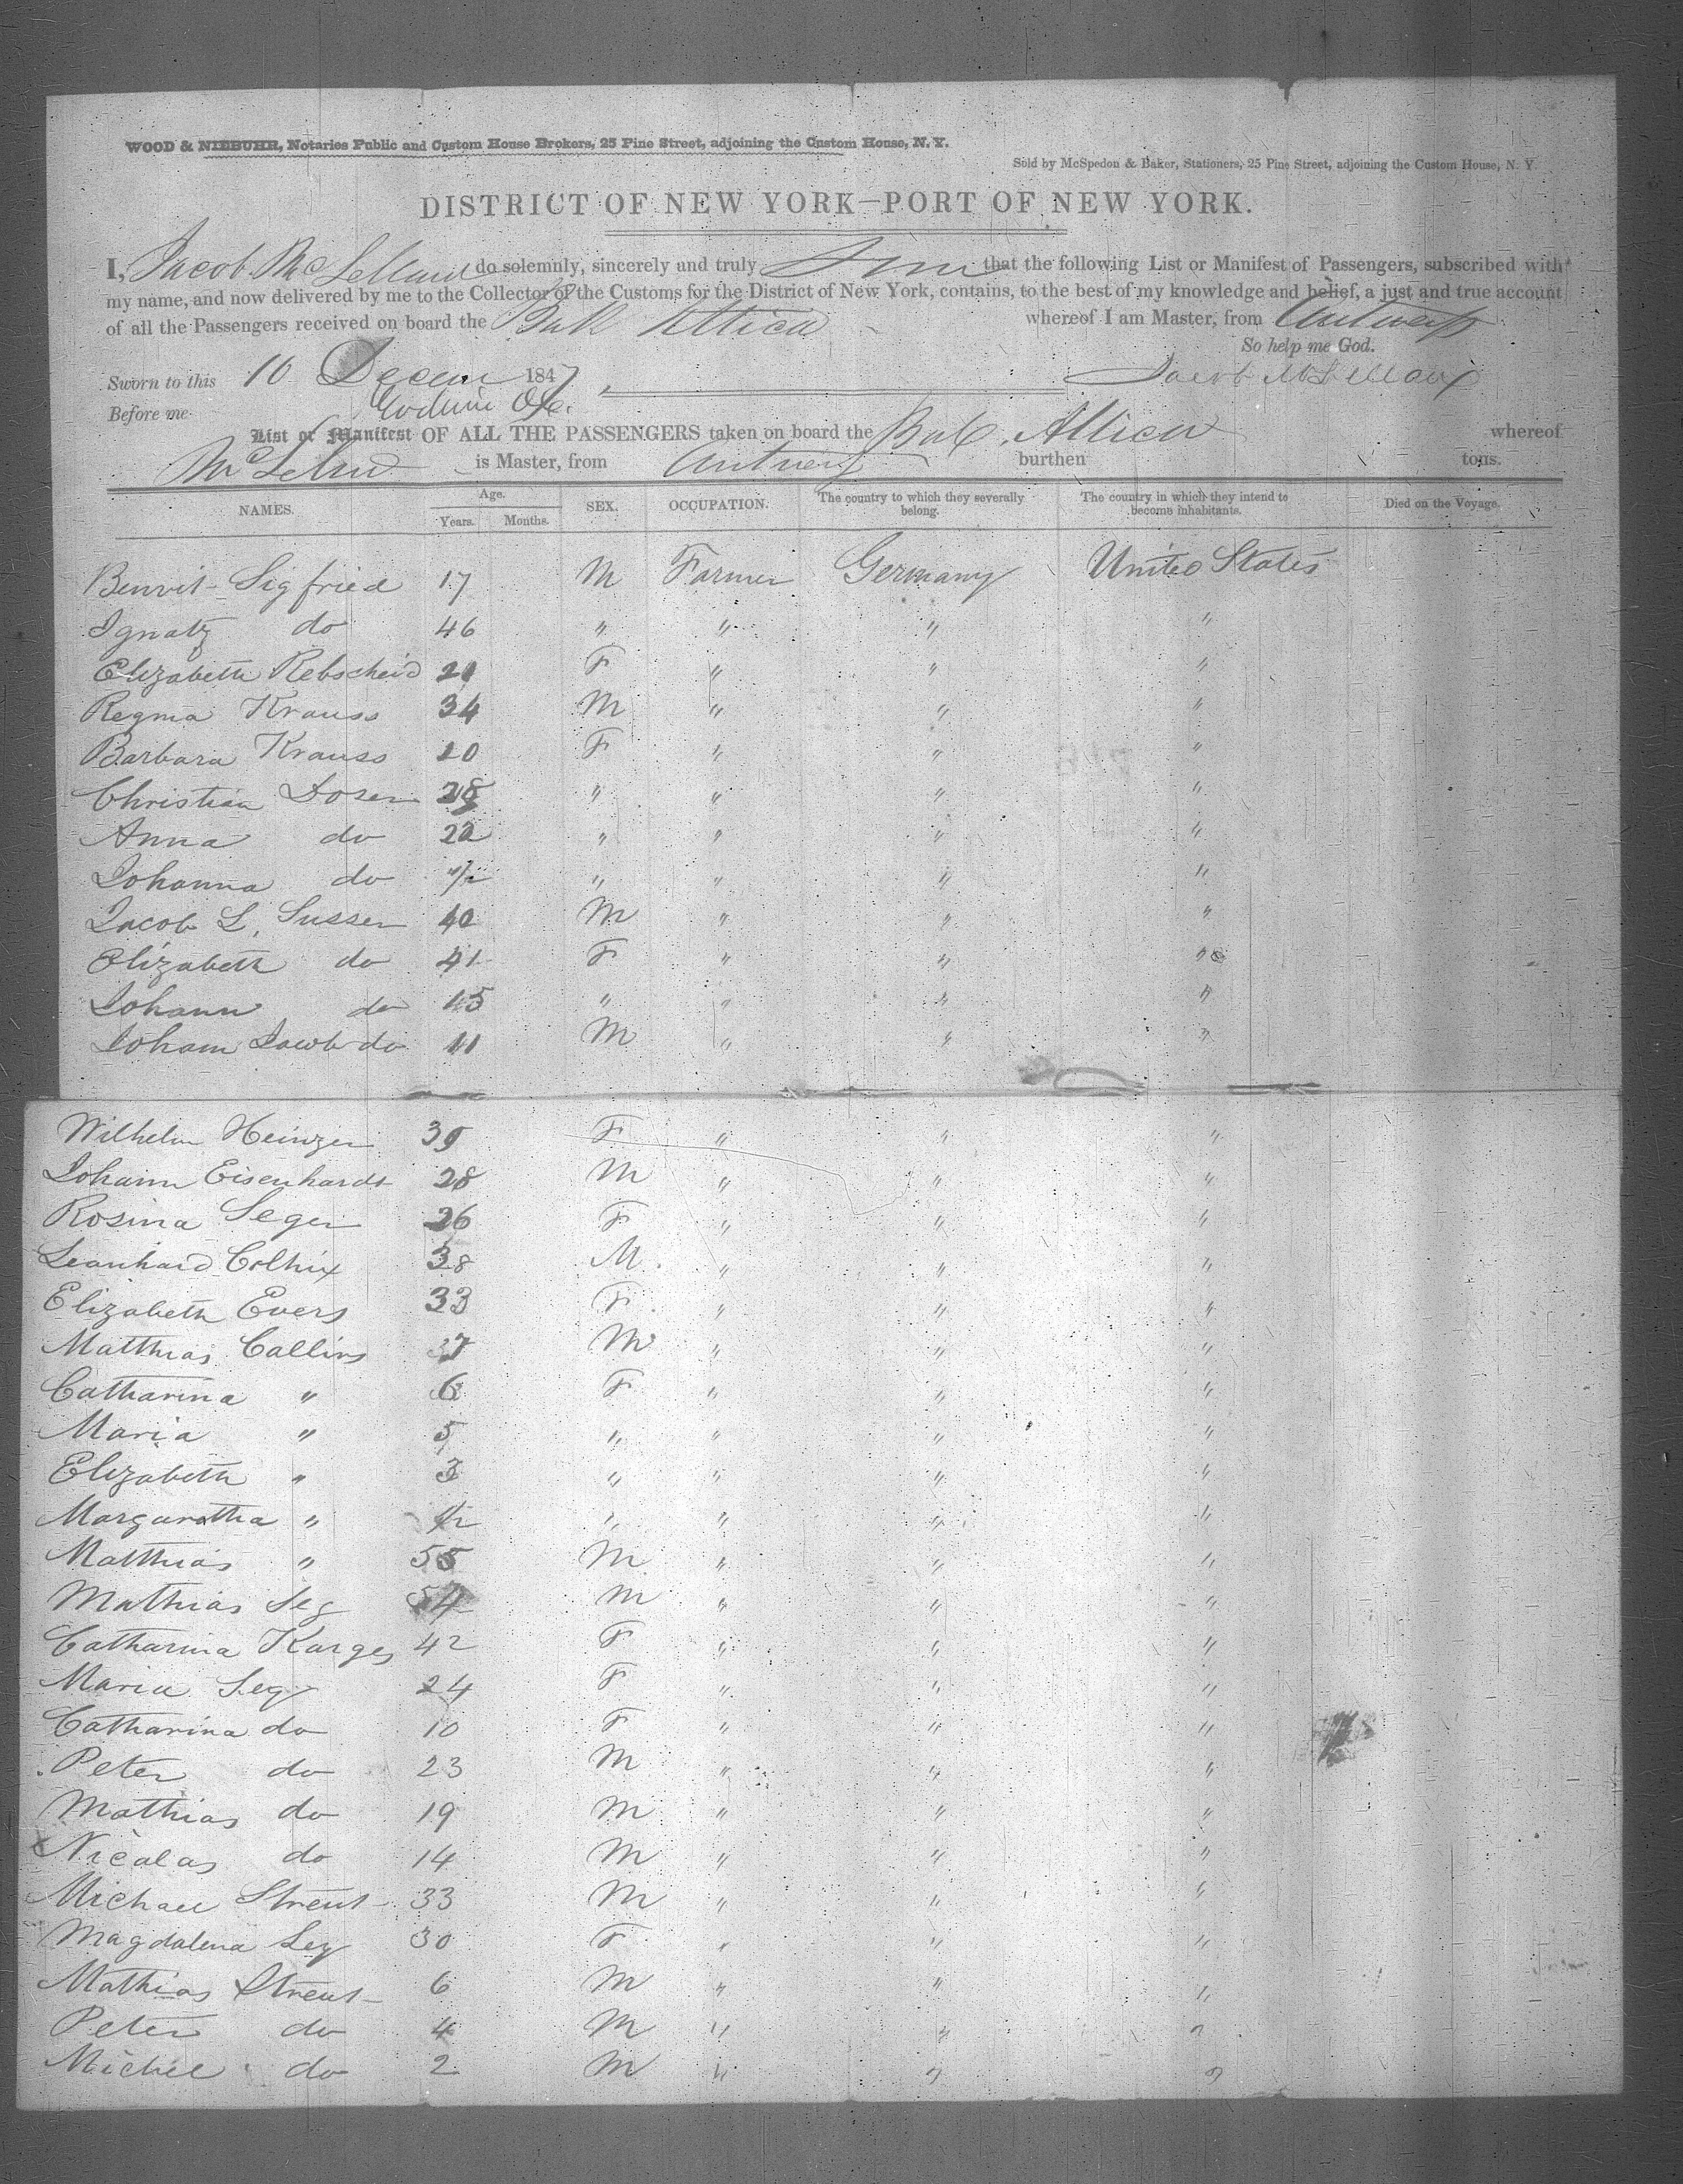 WOOD & NIEBUHR, Notaries Public and Custom House Brokers, 25 Pine Street, adjoining the Custom House, N. Y.
Sold by McSpedon & Baker, Stationers, 25 Pine Street, adjoining the Custom House, N. Y
DISTRICT OF NEW YORK—PORT OF NEW YORK.
I, Jacob McLellan do solemnly, sincerely and truly that the following List or Manifest of Passengers, subscribed with
my name, and now delivered by me to the Collector of the Customs for the District of New York, contains, to the best of my knowledge and belief, a just and true account
of all the Passengers received on board the Bark Attica whereof I am Master, from Antwerp
So help me God.
Sworn to this 10 Decem 1847 Jacob McLellan
Before me
List or Manifest OF ALL THE PASSENGERS taken on board the Bark Attica whereof
is Master, from Antwerp burthen tons.
NAMES. Age. Years. Months. SEX. OCCUPATION. The country to which they severally belong. The country in which they intend to become inhabitants. Died on the Voyage.
Sigfried 17 M Farmer Germany United States
Ignatz do 46 " " " "
Elizabeth Rebscheid 21 F " " "
Regina Krauss 34 M " " "
Barbara Krauss 10 F " " "
Christian 28 " " " "
Anna do 22 " " " "
Johanna do 1/2 " " " "
Jacob L. Susser 40 M " " "
Elizabeth do 41 F " " "
Johann do 15 " " " "
Johann Jacob do 11 M " " "
Wilhelm Heinzen 39 F " " "
Johann Eisenhardt 28 M " " "
Rosina Seger 26 F " " "
Leonhard 38 M. " " "
Elizabeth Evers 33 F " " "
Matthias Callins 37 M " " "
Catharina " 6 F " " "
Maria " 5 " " " "
Elizabeth " 3 " " " "
Margaretha " 1/2 " " " "
Matthias " 55 M " " "
Mathias Seg 54 M " " "
Catharina Karges 42 F " " "
Maria Seg 24 F " " "
Catharina do 10 F " " "
Peter do 23 M " " "
Mathias do 19 M " " "
Nicolas do 14 M " " "
Michael Streut 33 M " " "
Magdalena Seg 30 F " " "
Mathias Streut 6 M " " "
Peter do 4 M " " "
Michel do 2 M " " "